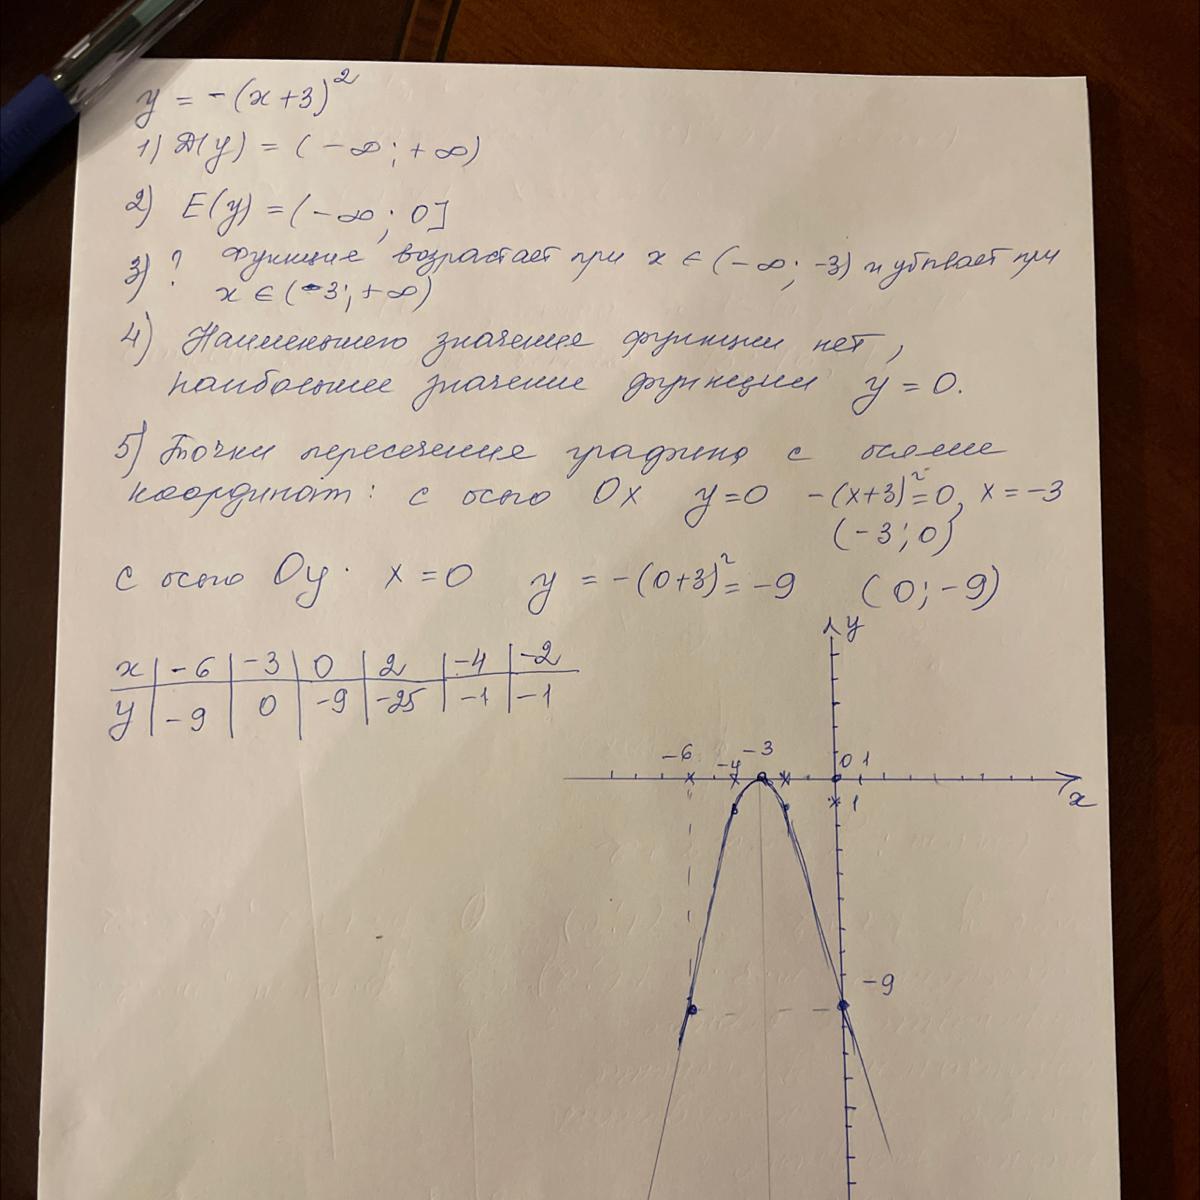 y = -(x+3)²
1) D(y) = (-∞; +∞)
2) E(y) = (-∞; 0]
3) ? Функция возрастает при x ∈ (-∞; -3) и убывает при
x ∈ (-3; +∞)
4) Наименьшего значения функции нет,
наибольшее значение функции y = 0.
5) Точки пересечения графика с осями
координат: с осью Ox y=0 -(x+3)²=0, x = -3
(-3; 0)
с осью Oy. x = 0 y = -(0+3)² = -9 (0; -9)
x | -6 | -3 | 0 | 2 | -4 | -2
y | -9 | 0 | -9 | -25 | -1 | -1
y
-6 -4 -3 0 1
x
1
-9